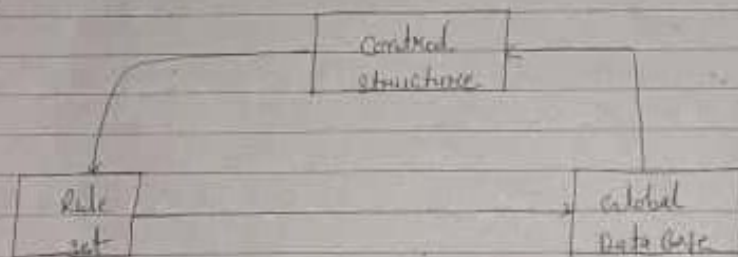 Control
structure
Rule
set
Global
Data Base